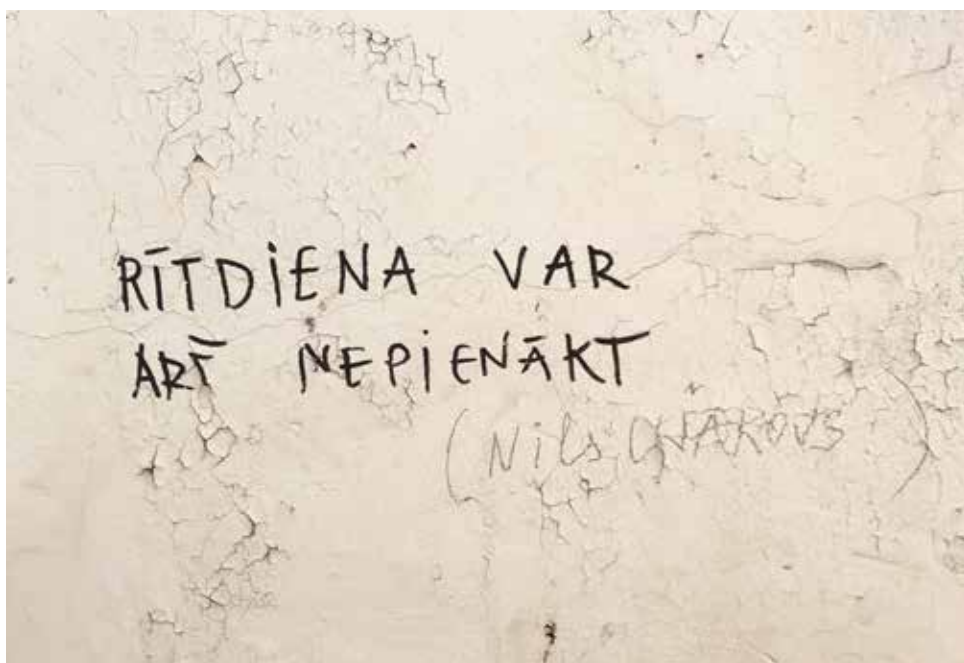 RĪTDiENA VAR
ARĪ NEPiENĀKT
(Nils UŠAKOVS)